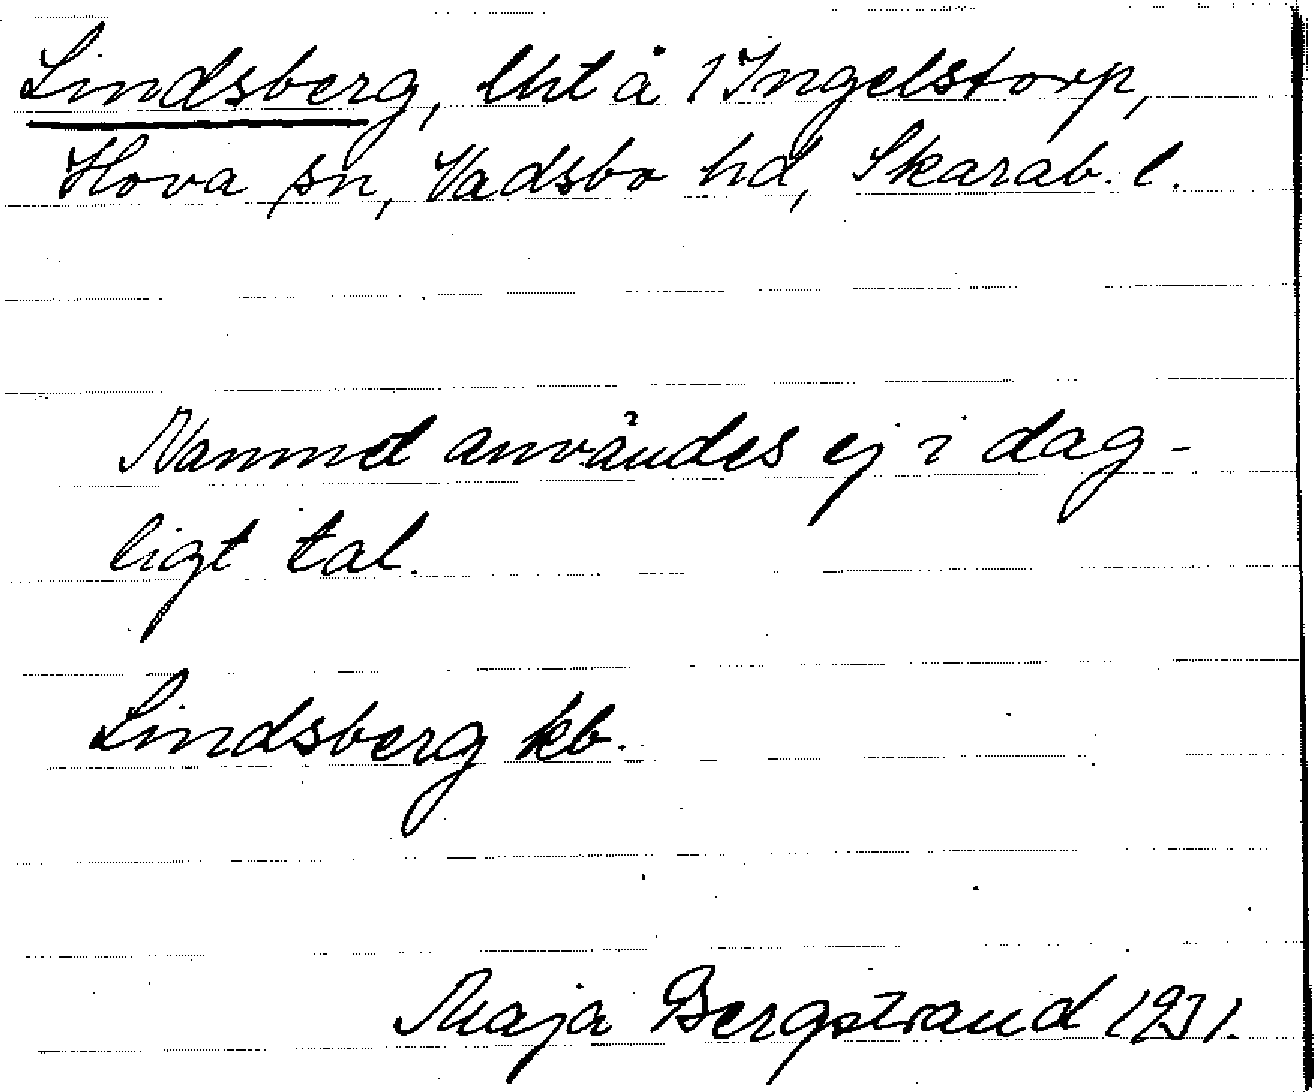 Lindsberg, lht å 1 Ingelstorp,
Hova sn, Vadsbo hd, Skarab. l.
Namnet användes ej i dag-
ligt tal.
Lindsberg kb.
Maja Bergstrand 1931.